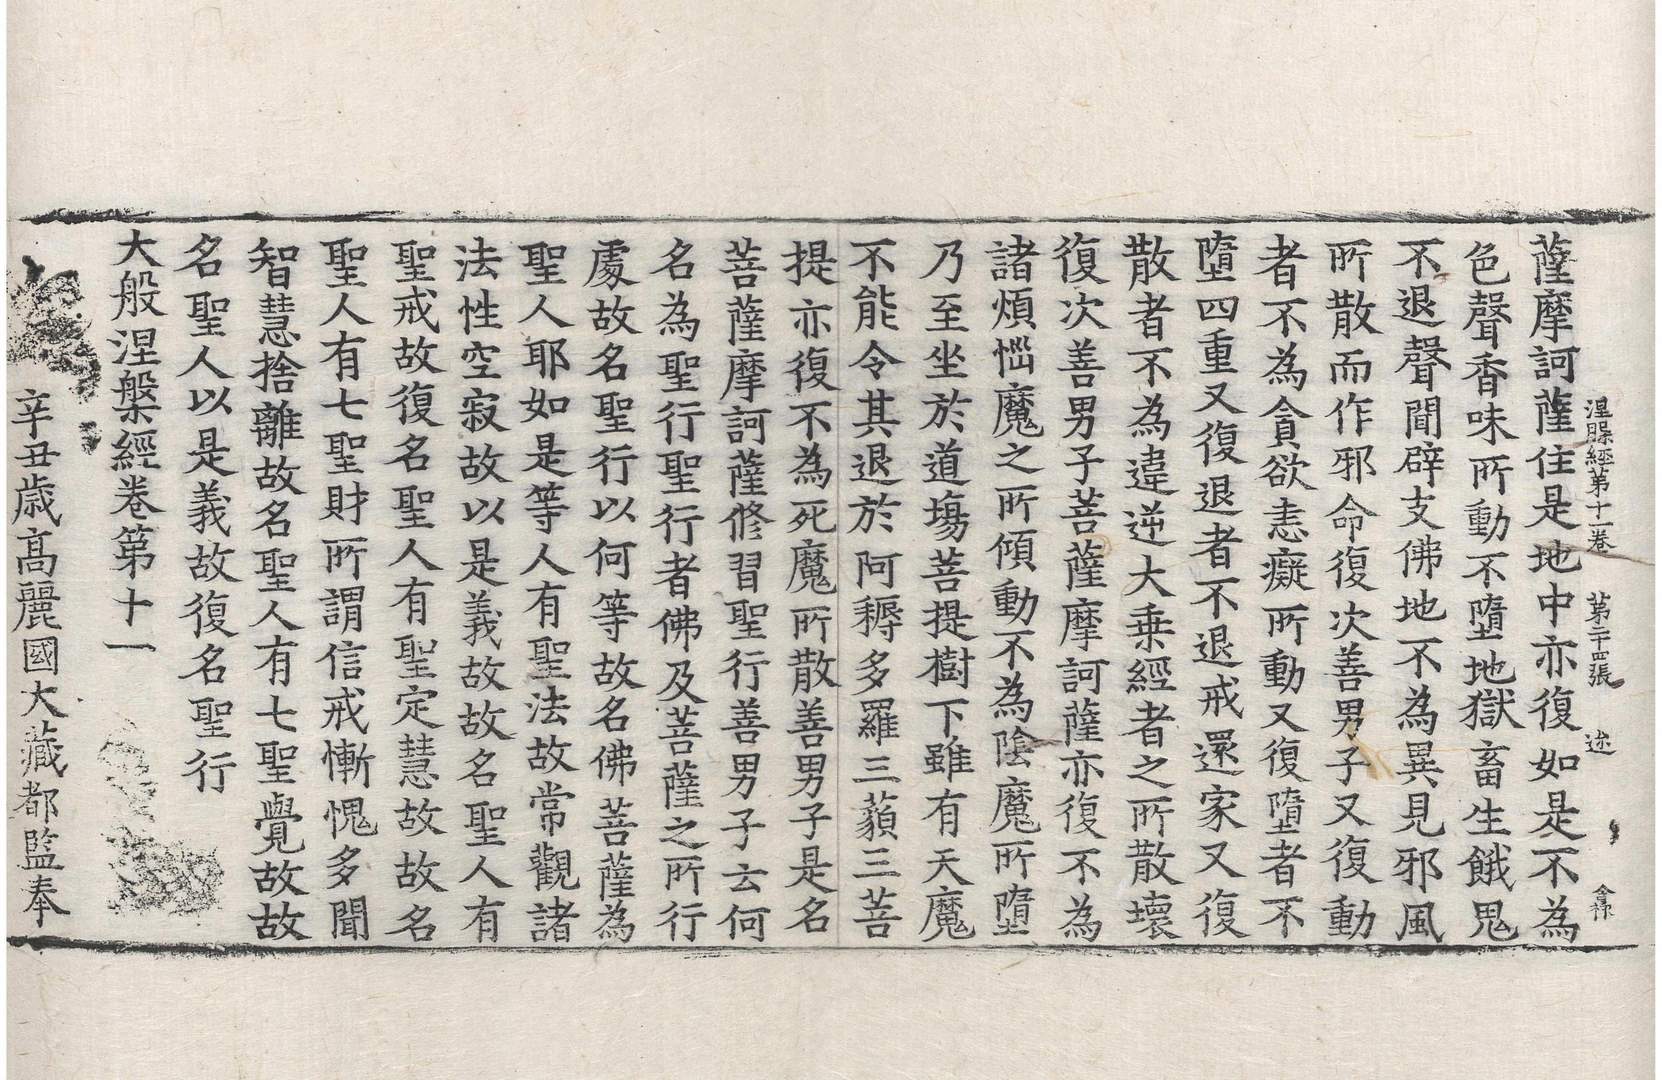 涅槃經第十一卷 第二十四張 述
薩摩訶薩住是地中亦復如是不為
色聲香味所動不墮地獄畜生餓鬼
不退聲聞辟支佛地不為異見邪風
所散而作邪命復次善男子又復動
者不為貪欲恚癡所動又復墮者不
墮四重又復退者不退戒還家又復
散者不為違逆大乗經者之所散壞
復次善男子菩薩摩訶薩亦復不為
諸煩惱魔之所傾動不為陰魔所墮
乃至坐於道場菩提樹下雖有天魔
不能令其退於阿耨多羅三藐三菩
提亦復不為死魔所散善男子是名
菩薩摩訶薩修習聖行善男子云何
名為聖行聖行者佛及菩薩之所行
處故名聖行以何等故名佛菩薩為
聖人耶如是等人有聖法故常觀諸
法性空寂故以是義故故名聖人有
聖戒故復名聖人有聖定慧故故名
聖人有七聖財所謂信戒慚愧多聞
智慧捨離故名聖人有七聖覺故故
名聖人以是義故復名聖行
大般涅槃經卷第十一
辛丑歳高麗國大藏都監奉